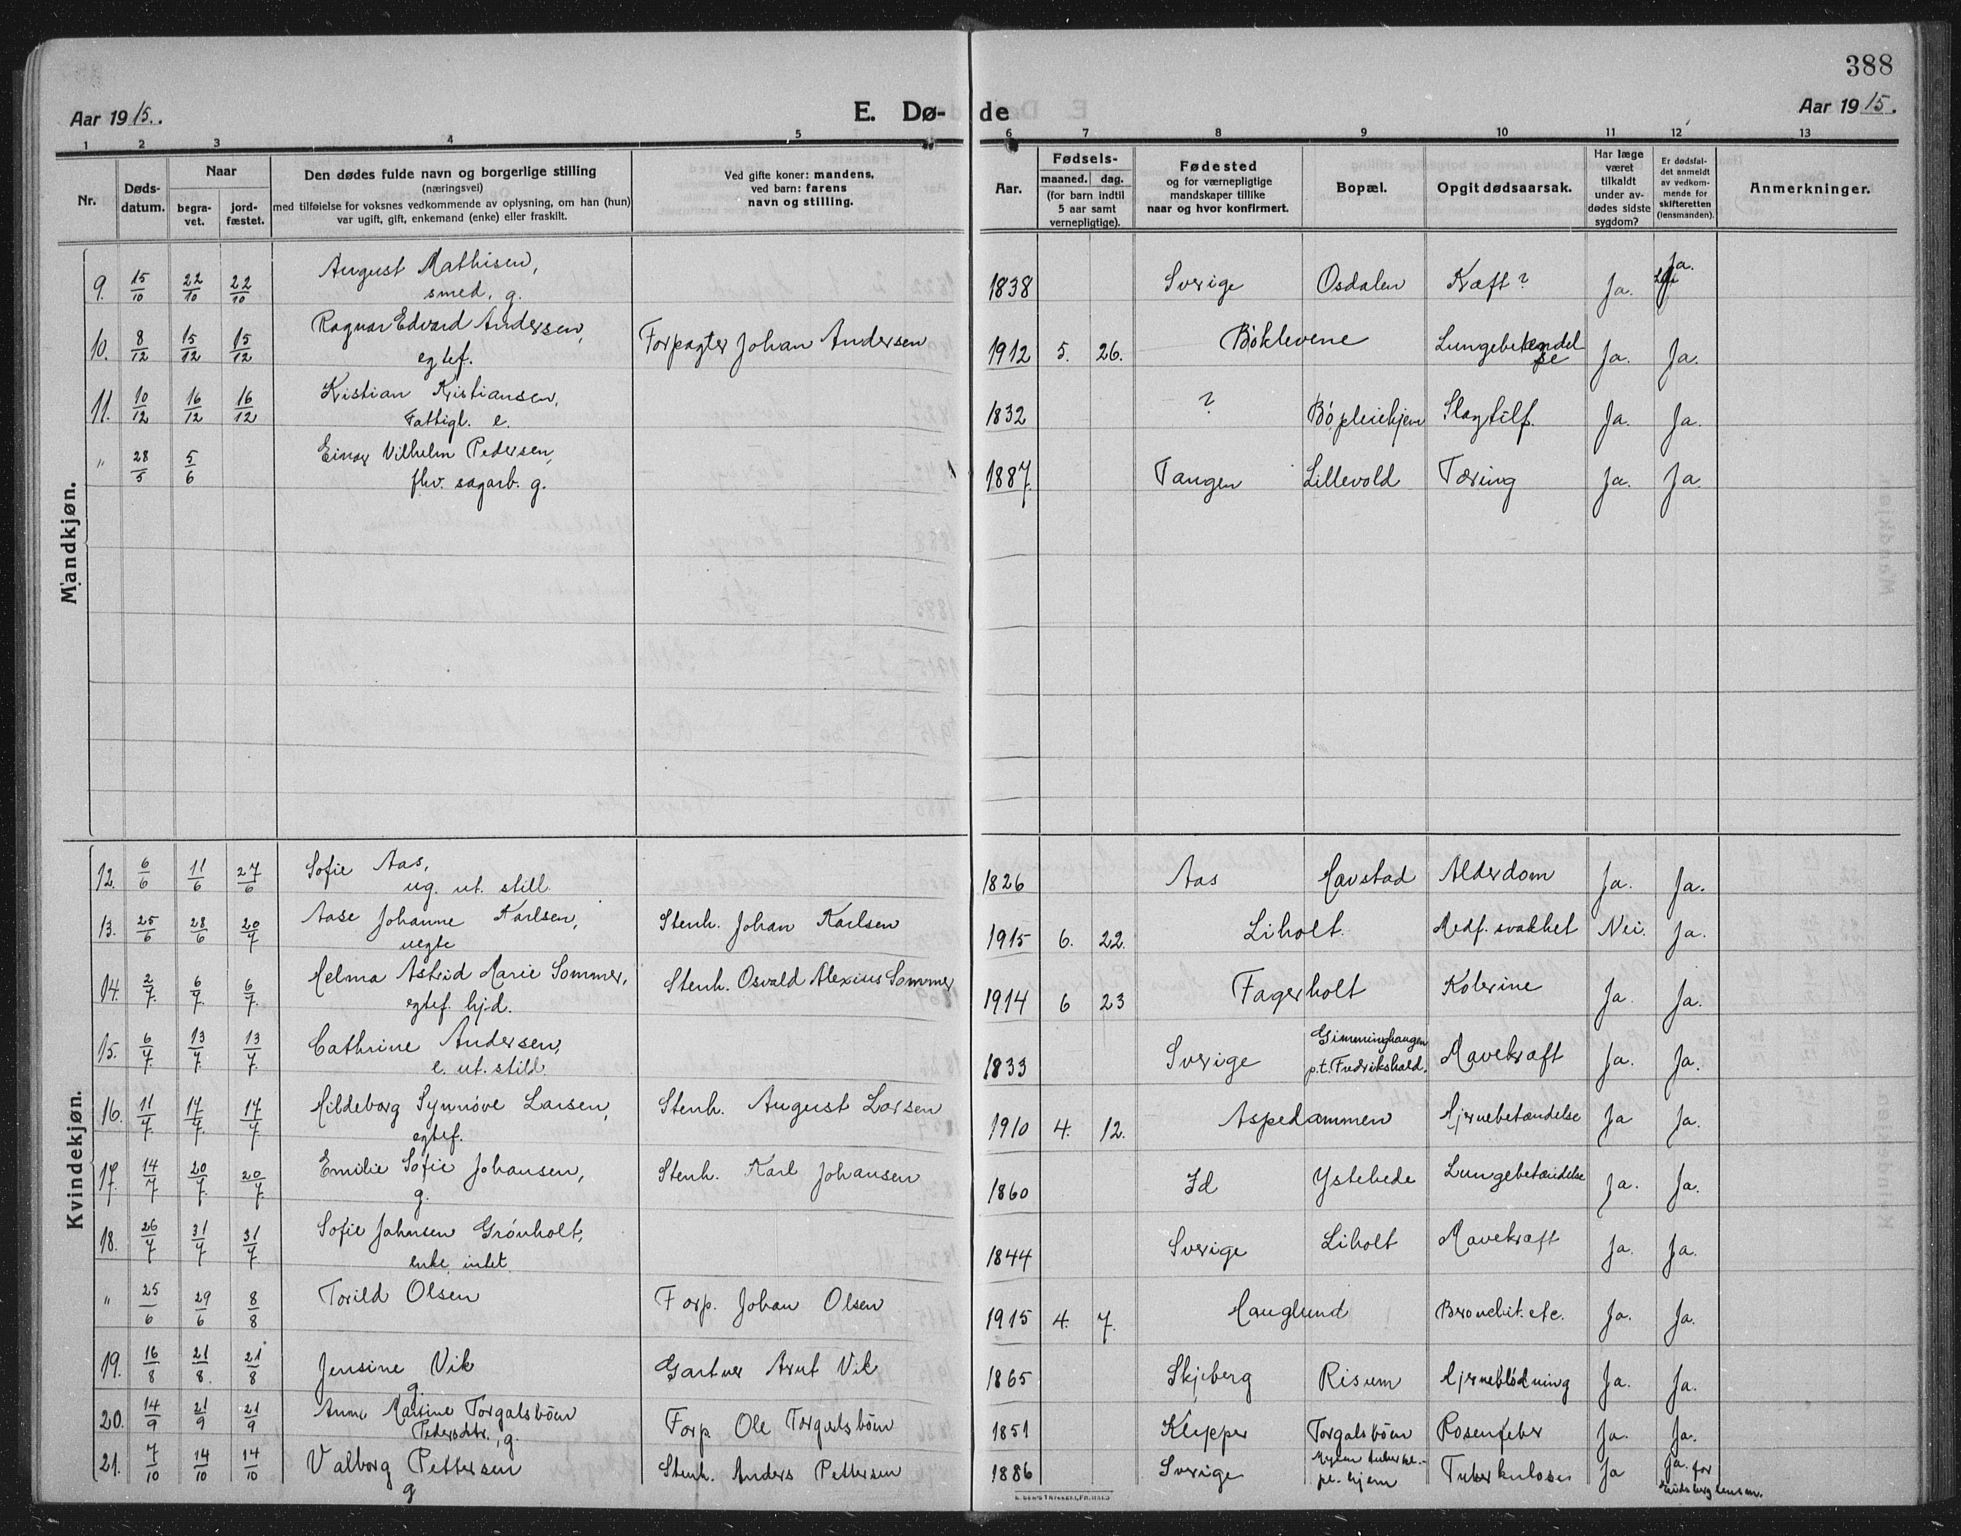 388
Aar 1915.
E. Dø- de
Aar 1915.
1 2 3 4 5 6 7 8 9 10 11 12 13
Nr.
Døds-
datum.
Naar
begra-
vet.
jord-
fæstet.
Den dødes fulde navn og borgerlige stilling
(næringsvei)
med tilføielse for voksnes vedkommende av oplysning, om han (hun)
var ugift, gift, enkemand (enke) eller fraskilt.
Ved gifte koner: mandens,
ved barn: farens
navn og stilling.
Fødsels-
Aar.
maaned. dag.
(for barn indtil
5 aar samt
vernepligtige).
Fødested
og for værnepligtige
mandskaper tillike
naar og hvor konfirmert.
Bopæl.
Opgit dødsaarsak.
Har læge
været
tilkaldt
under av-
dødes sidste
sygdom?
Er dødsfal-
det anmeldt
av vedkom-
mende for
skifteretten
(lensmanden).
Anmerkninger.
Mandkjøn.
9. 15/10 22/10 22/10 August Mathisen, 1838 Sverige Osdalen Kræft? Ja. Ja.
smed, g.
10. 8/12 15/12 15/12 Ragnar Edvard Andersen, Forpagter Johan Andersen 1912 5. 26. Bøklevene Lungebetændel
egtef. se Ja. Ja.
11. 10/12 16/12 16/12 Kristian Kristiansen, 1832 ? Bø pleiehjem Slagtilf. Ja. Ja.
Fattigl. e.
" 28/5 5/6 Einar Vilhelm Pedersen, 1887 Tangen Lillevold Tæring Ja. Ja.
fhv. sagarb. g.
Kvindekjøn.
12. 6/6 11/6 27/6 Sofie Aas, 1826 Aas Havstad Alderdom Ja. Ja.
ug. ut. still.
13. 25/6 28/6 20/7 Aase Johanne Karlsen, Stenh. Johan Karlsen 1915 6. 22. Liholt. Medf. svakhet Nei. Ja.
uegte
14. 2/7. 6/7. 6/7. Helma Astrid Marie Sommer, Stenh. Osvald Alexius Sommer 1914 6 23 Fagerholt Kolerine Ja. Ja.
egtef. hjd.
15. 6/7. 13/7. 13/7. Cathrine Andersen, 1833 Sverige Gimminghaugen
e. ut. still. p.t. Fredrikshald. Mavekræft Ja. Ja.
16. 11/7. 17/7. 17/7 Hildeborg Synnøve Larsen, Stenh. August Larsen 1910 4. 12. Aspedammen Hjernebetændelse Ja Ja.
egtef.
17. 14/7 20/7. 20/7. Emilie Sofie Johansen, Stenh. Karl Johansen 1860 Id Ystehede Lungebetændelse Ja. Ja.
g.
18. 26/7 31/7 31/7 Sofie Johansen Grønholt, 1844 Sverige Liholt Mavekræft Ja. Ja.
enke, intet.
" 25/6 29/6 8/8 Torild Olsen Forp. Johan Olsen 1915 4. 7. Hauglund Bronchit. etc. Ja. Ja.
19. 16/8 21/8. 21/8 Jensine Vik Gartner Arnt Vik 1865 Skjeberg Risum Hjerneblødning Ja. Ja.
g.
20. 14/9 21/9 21/9 Anne Martine Torgalsbøen Forp Ole Torgalsbøen 1851 Klepper Torgalsbøen Rosenfeber Ja. Ja.
Pedersdtr., g.
21. 7/10 14/10 14/10 Valborg Pettersen Stenh. Anders Pettersen 1886 Sverige Tuberkulose Ja Ja. for
g pl. hjem